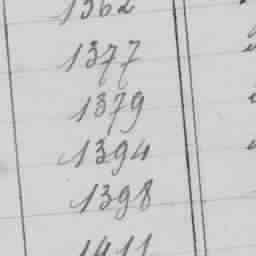 1362
1377
1379
1394
1398
1411